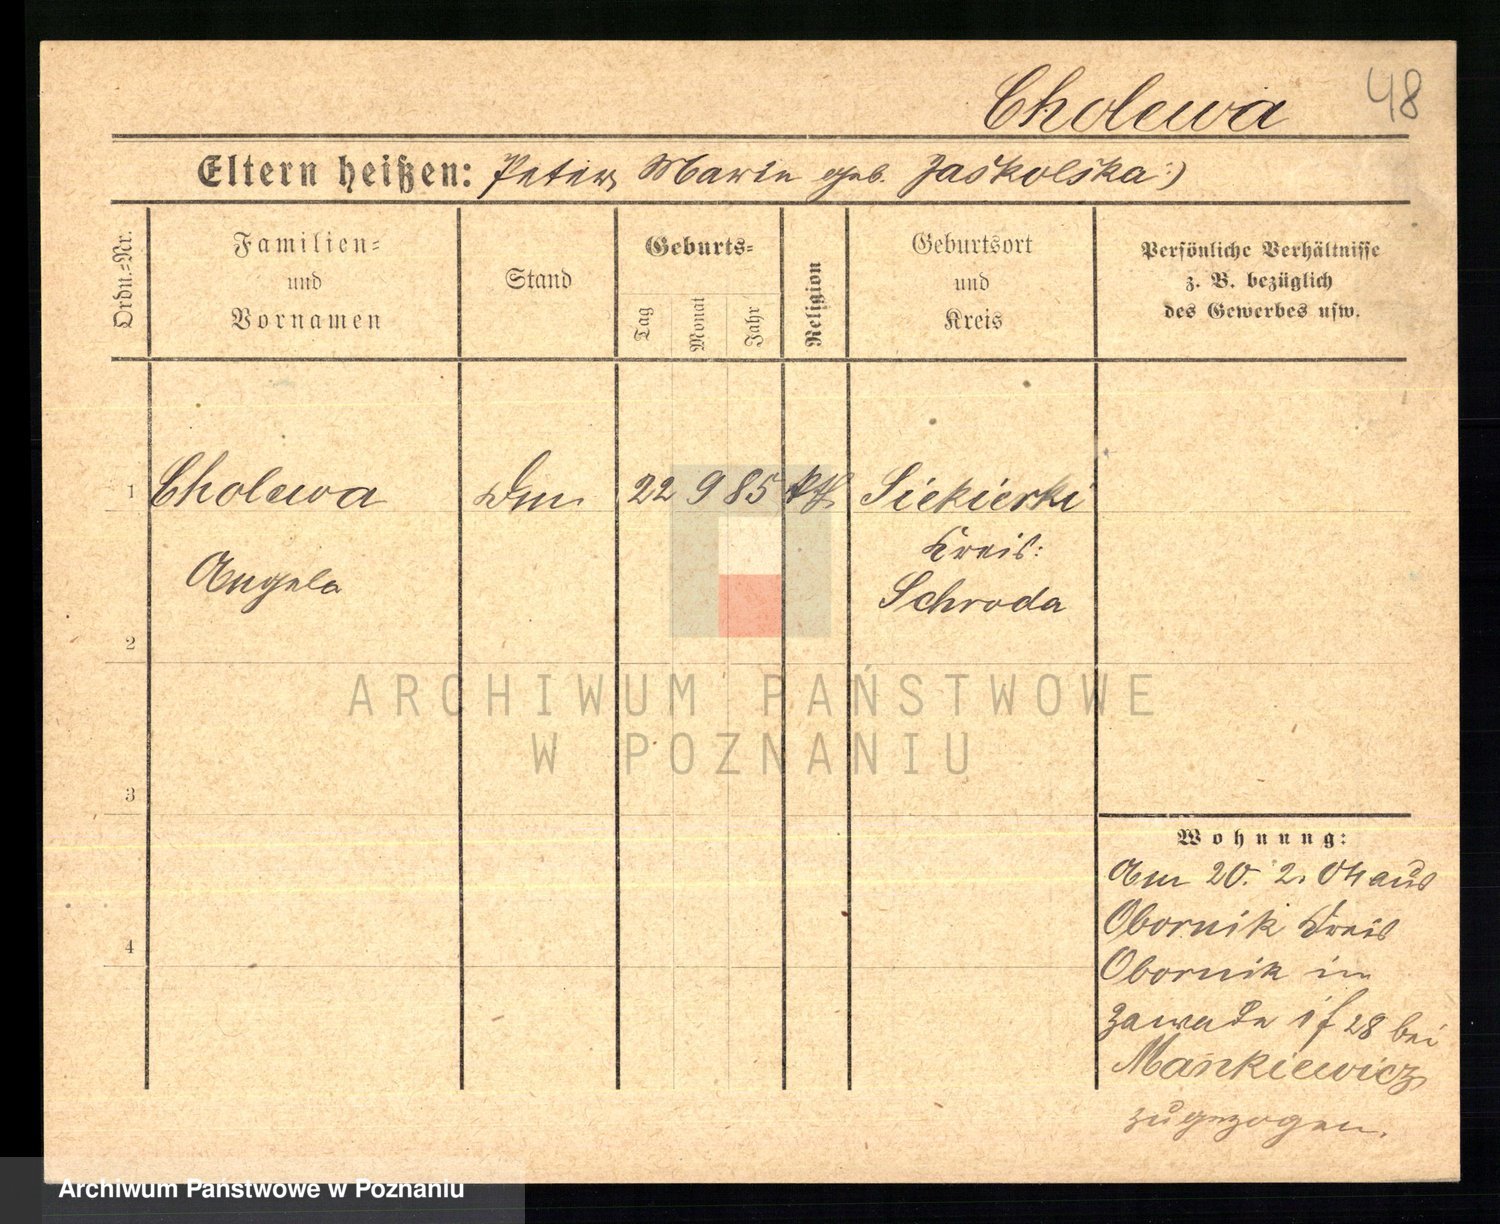 Cholewa
48
Eltern heißen: Peter Marie geb. Jaskolska:)
Ordn.-Nr.
Familien-
und
Vornamen
Stand
Geburts-
Tag
Monat
Jahr
Religion
Geburtsort
und
Kreis
Persönliche Verhältnisse
z. B. bezüglich
des Gewerbes usw.
1 Cholewa 22 9 85 kth Siekierki
Kreis:
Angela Schroda
2
ARCHIWUM PAŃSTWOWE
W POZNANIU
3
Wohnung:
Am 20. 2. 04 aus
Obornik Kreis
4
Obornik in
Zawade 28 bei
Mankiewicz
zugezogen.
Archiwum Państwowe w Poznaniu